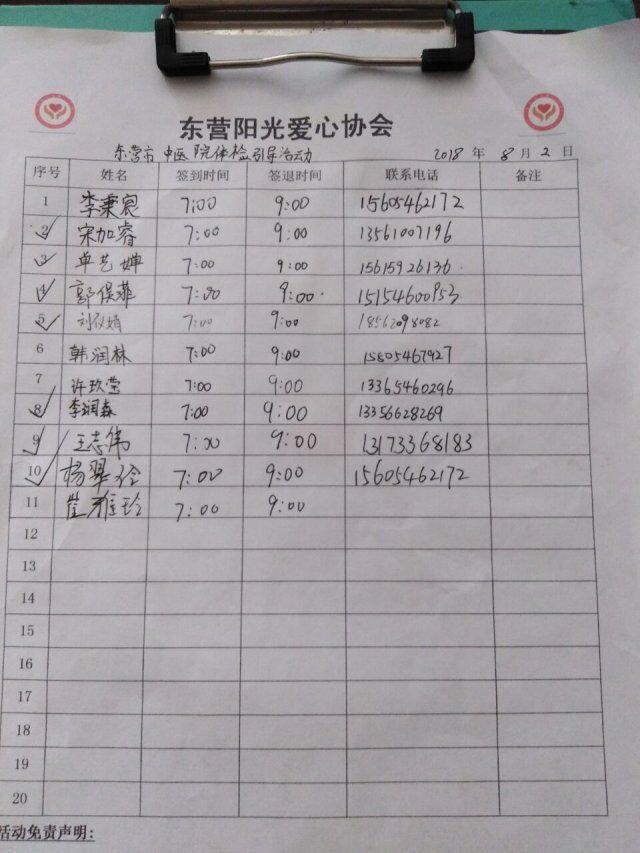 东营阳光爱心协会
东营市中医院体检引导活动 2018年8月2日
序号 姓名 签到时间 签退时间 联系电话 备注
1 李秉宸 7:00 9:00 15605462172
2 宋加睿 7:00 9:00 13561007196
3 单艺婵 7:00 9:00 15615926136
4 郭俣菲 7:00 9:00 15154600953
5 刘仪婧 7:00 9:00 18562098082
6 韩润林 7:00 9:00 15805467927
7 许玖莹 7:00 9:00 13365460296
8 李润森 7:00 9:00 13356628269
9 王志伟 7:00 9:00 13173368183
10 杨翠玲 7:00 9:00 15605462172
11 崔雅玲 7:00 9:00
12
13
14
15
16
17
18
19
20
活动免责声明: